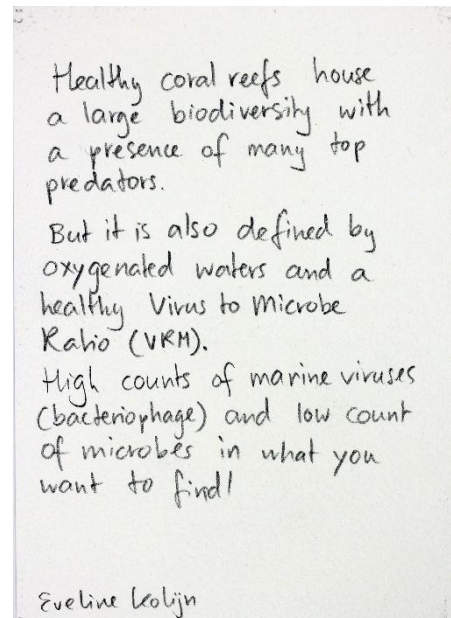 Healthy coral reefs house
a large biodiversity with
a presence of many top
predators.
But it is also defined by
oxygenated waters and a
healthy Virus to Microbe
Ratio (VRM).
High counts of marine viruses
(bacteriophage) and low count
of microbes in what you
want to find!
Eveline Kolijn